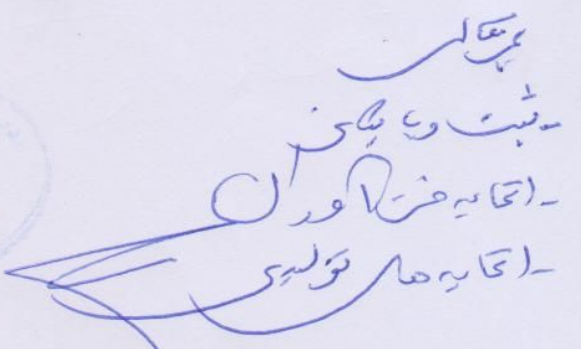 بسمه تعالی
- ثبت و بایگانی
- اتحادیه فن آوران
- اتحادیه های تولیدی